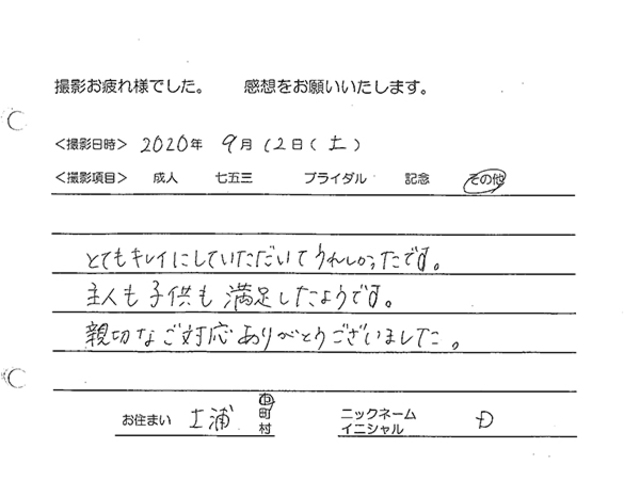 撮影お疲れ様でした。 感想をお願いいたします。
<撮影日時> 2020年 9月 12日( 土 )
<撮影項目> 成人 七五三 ブライダル 記念 その他
とてもキレイにしていただいてうれしかったです。
主人も子供も満足したようです。
親切なご対応ありがとうございました。
お住まい 土浦 市町村 ニックネーム イニシャル D